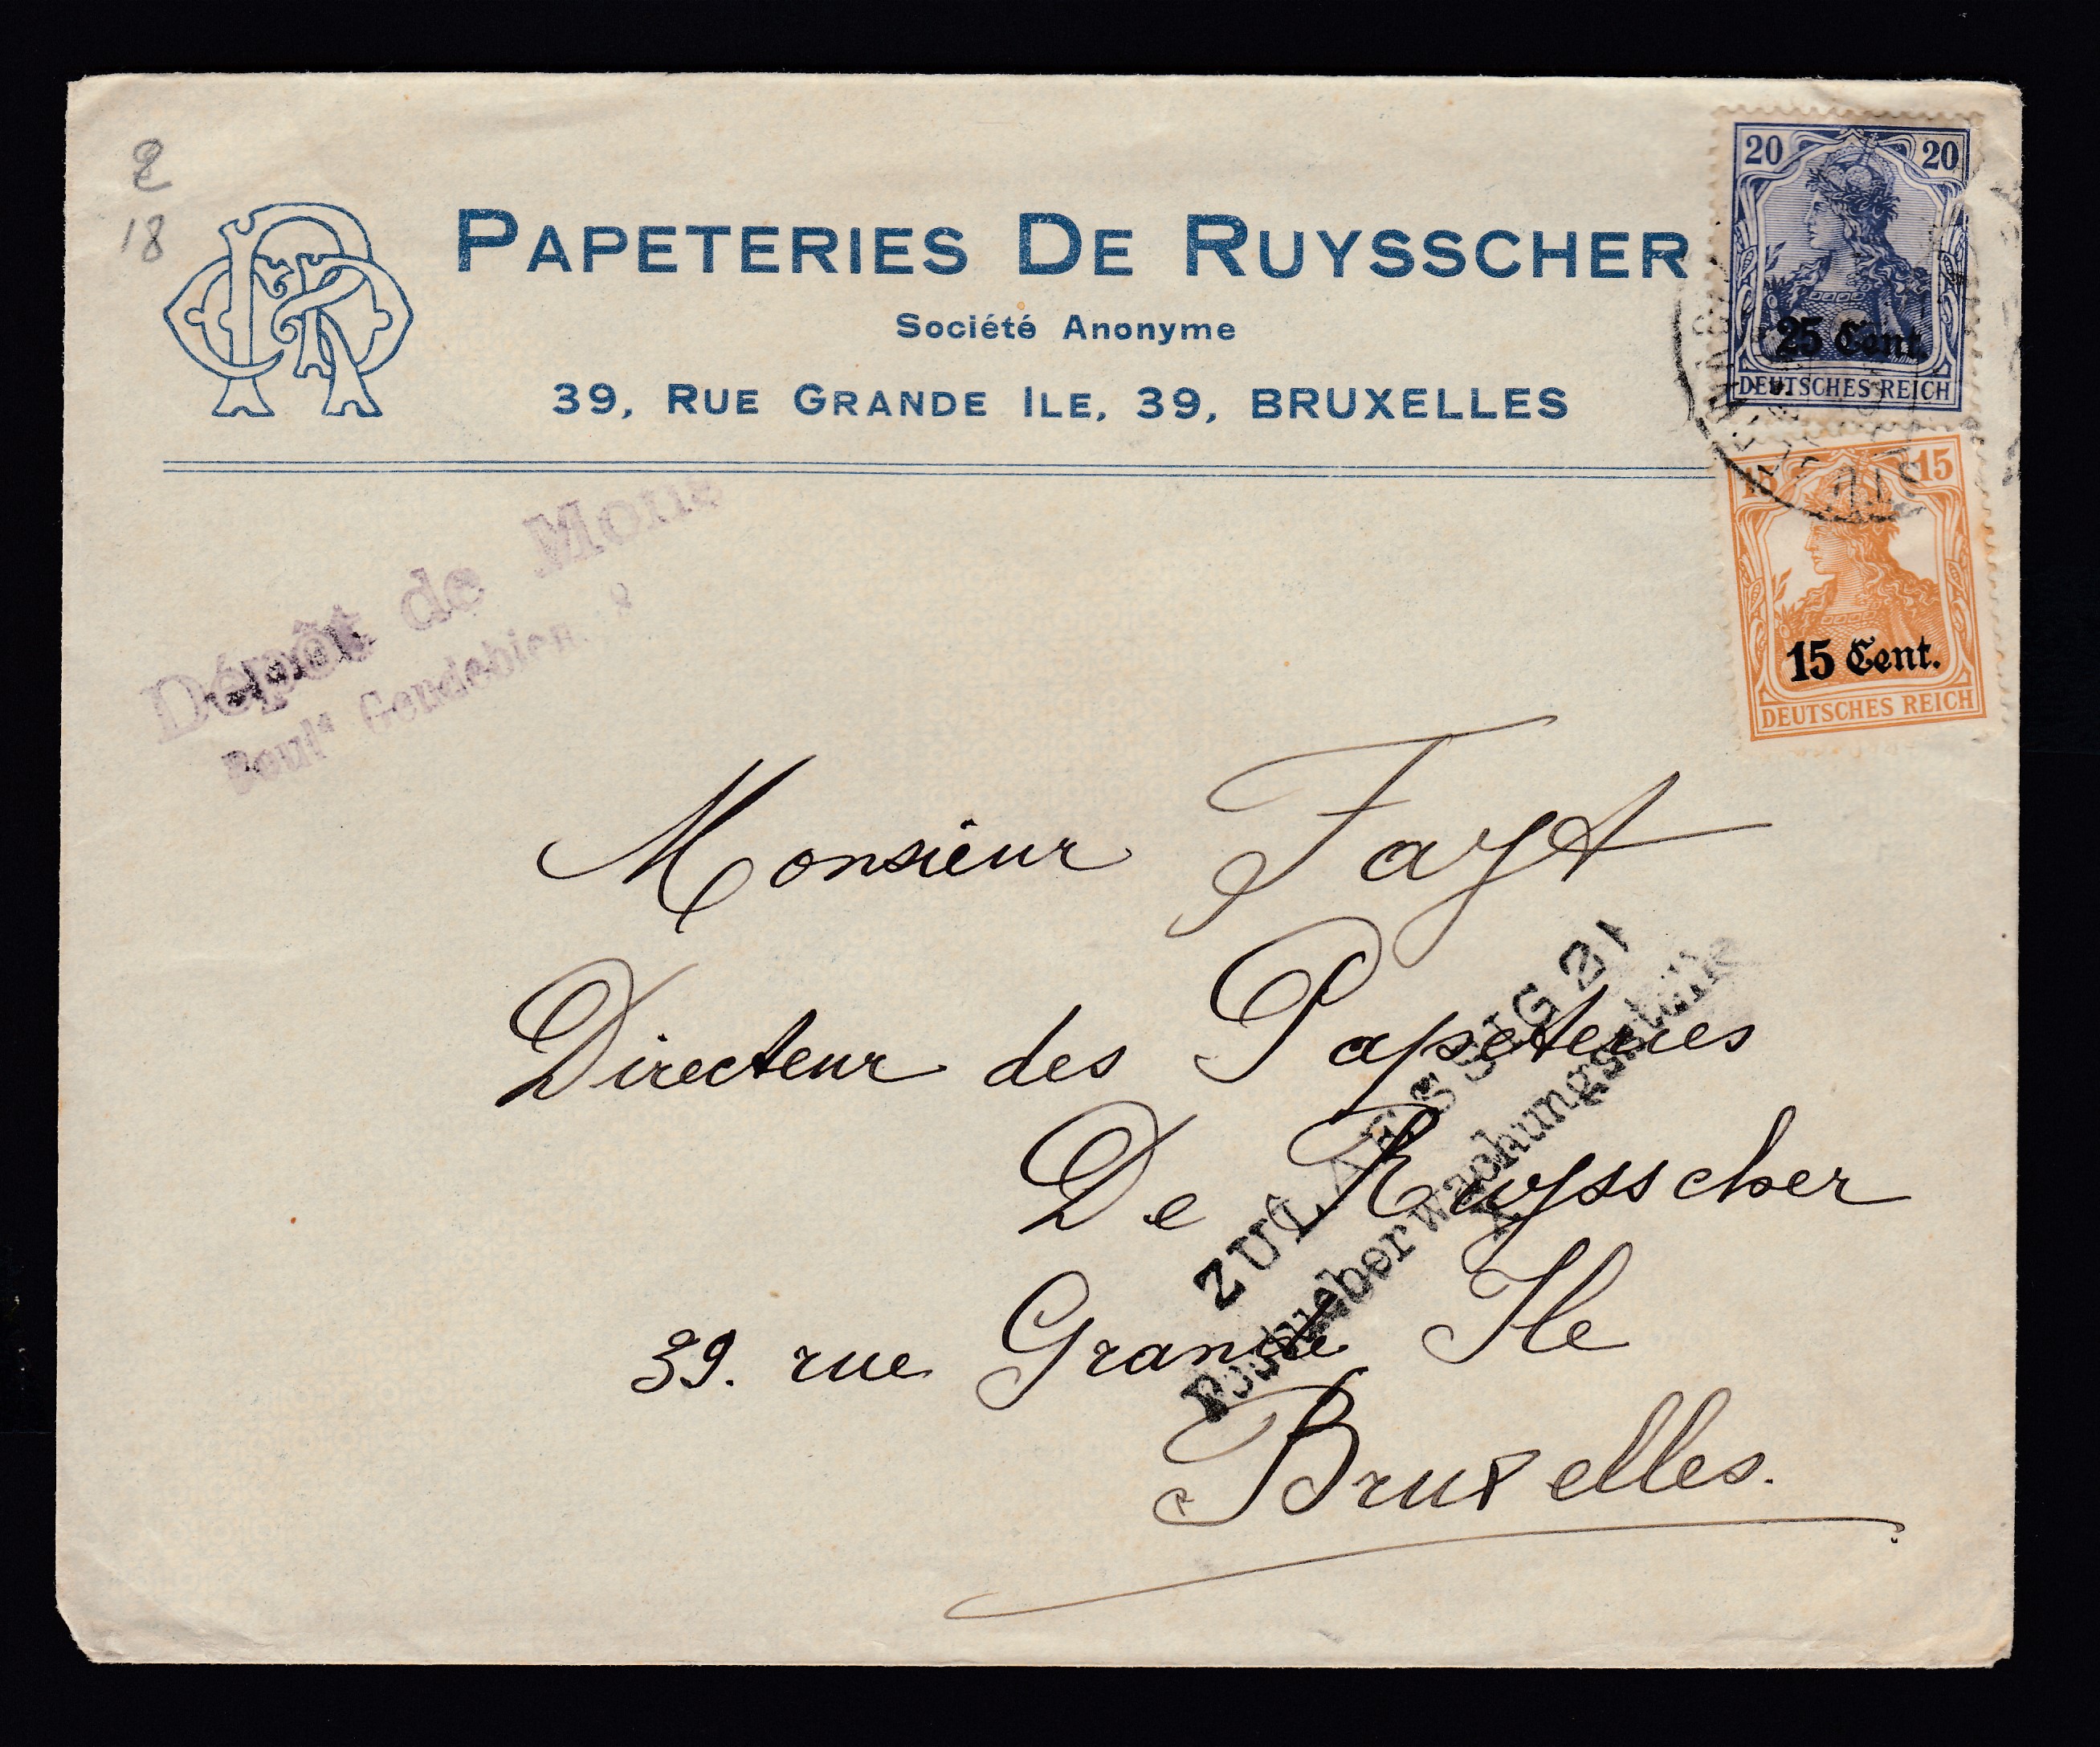 2
18
PAPETERIES DE RUYSSCHER
Société Anonyme
39, RUE GRANDE ILE, 39, BRUXELLES
20 20
25 Cent.
DEUTSCHES REICH
15 15
15 Cent.
DEUTSCHES REICH
Dépôt de Mons
Bould Gendebien, 8
Monsieur Fayt
Directeur des Papeteries
De Ruysscher
39. rue Grande Ile
Bruxelles.
ZULAESSIG 21
Postueberwachungsstelle